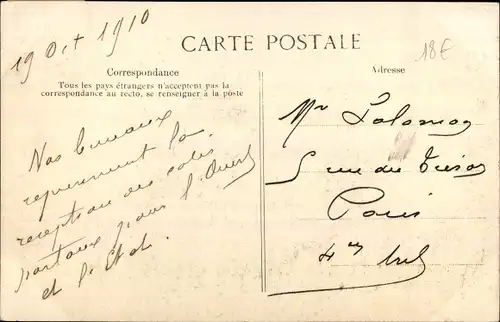 19 Oct 1910
CARTE POSTALE
18€
Correspondance
Tous les pays étrangers n'acceptent pas la
correspondance au recto, se renseigner à la poste
Nos bureaux
reprennent la
réception des colis
partaux pour l'Ouest
et l'Etat.
Adresse
Mr
5 rue du Trésor
Paris
4em